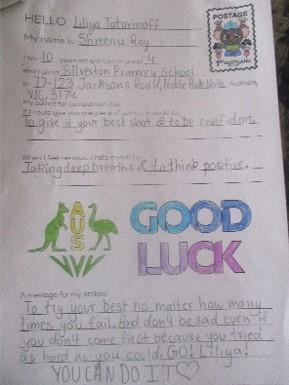 HELLO Liliya Tatarinoff
POSTAGE
SCOTLAND
My name is: Shreenu Roy
I am 10 years old and I am in grade 4
and I go to Silverton Primary School
in 77-123 Jacksons Road, Noble Park North, Australia,
VIC, 3174
My advice for competition day
If I could give you one piece of advice, it would be:
To give it your best shot & to be confident.
When I feel nervous, I help myself by:
Taking deep breaths & to think positive.
AUS
GOOD
LUCK
A message for my athlete:
To try your best no matter how many
times you fail. And don't be sad even if
you don't come first because you tried
as hard as you could. GO! Liliya!
YOU CAN DO IT